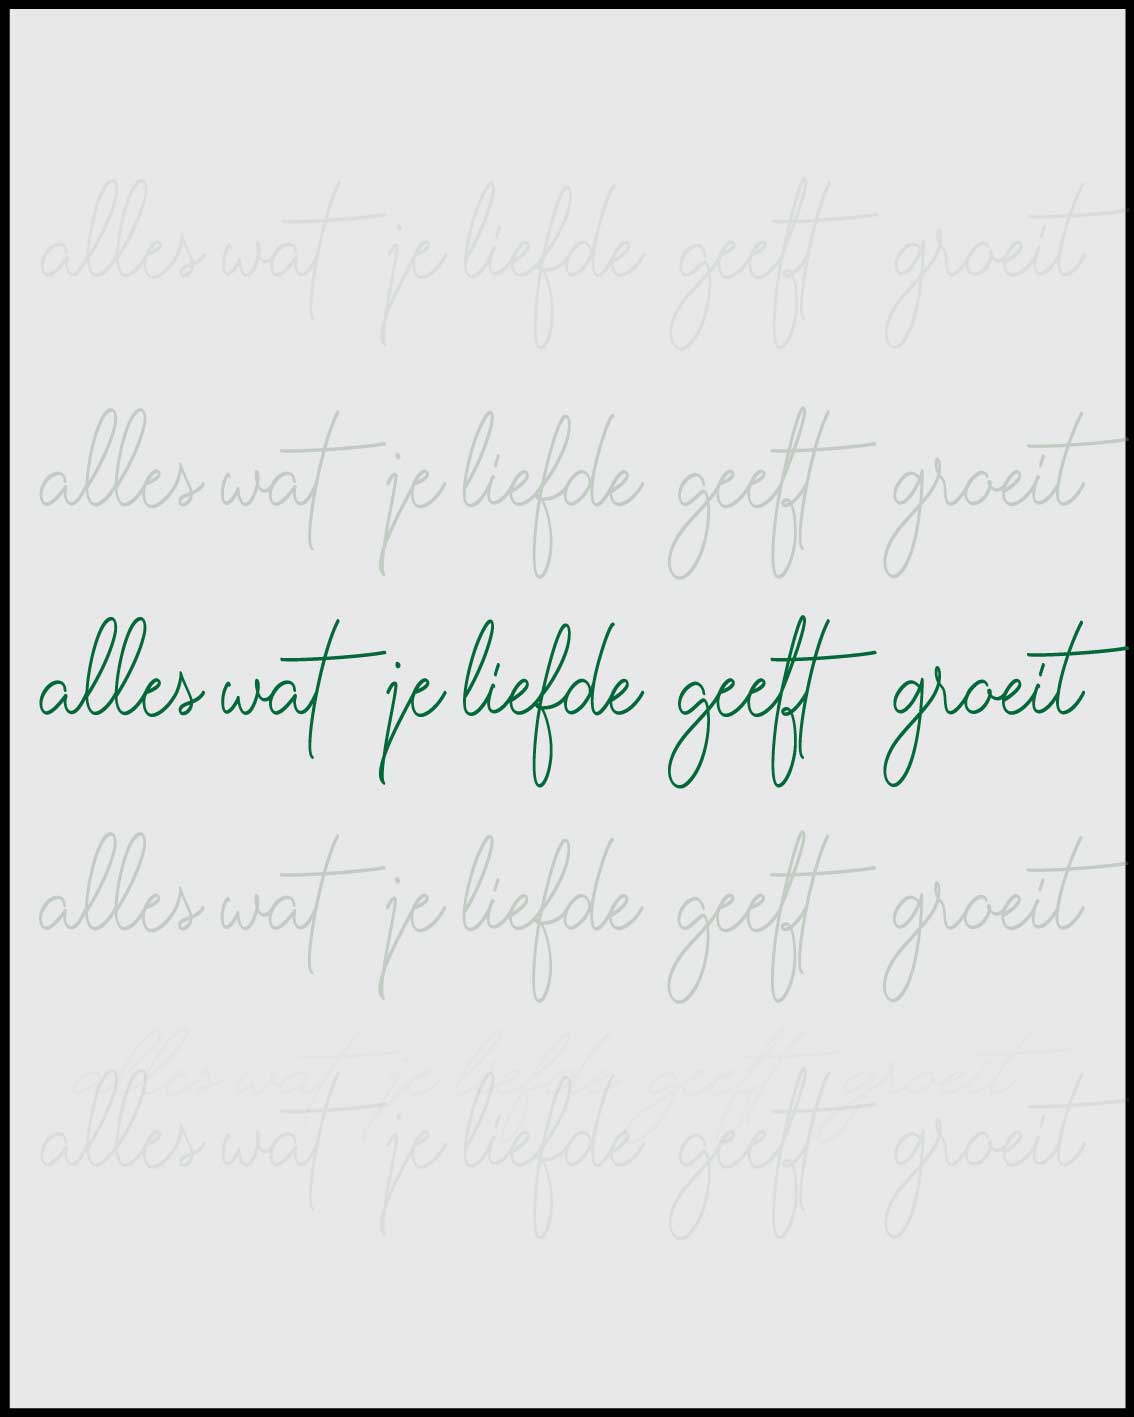 alles wat je liefde geeft groeit
alles wat je liefde geeft groeit
alles wat je liefde geeft groeit
alles wat je liefde geeft groeit
alles wat je liefde geeft groeit
alles wat je liefde geeft groeit